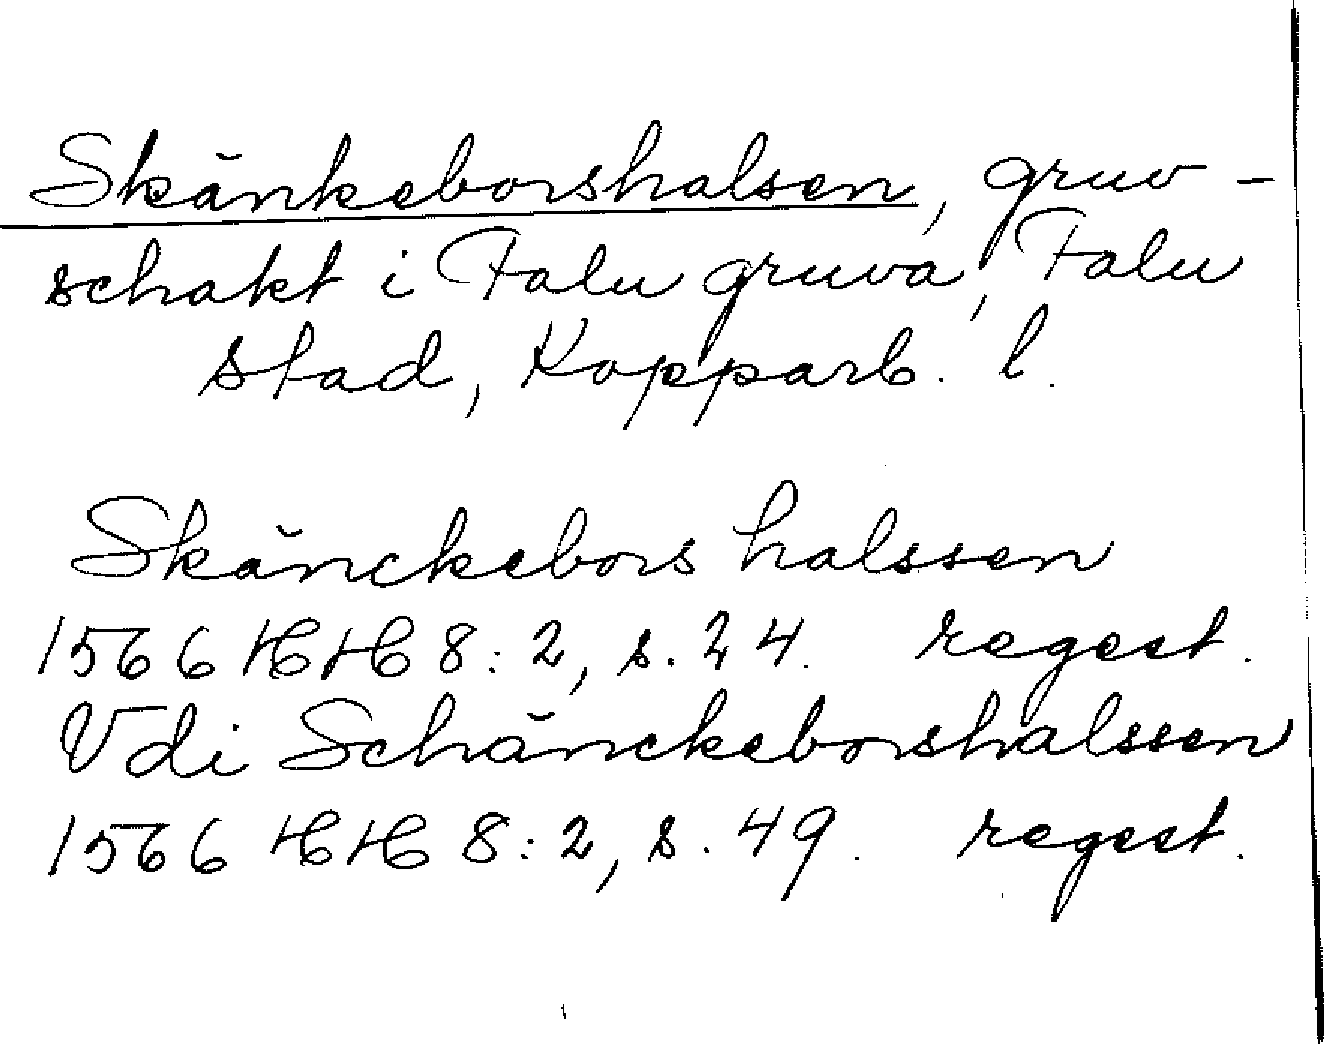 Skänkeborshalsen, gruv-
schakt i Falu gruva, Falu
stad, Kopparb. l.
Skänckebors halssen
1566 HH 8:2, s. 24. regest.
Vdi Schänckeborshalssen
1566 HH 8:2, s. 49. regest.